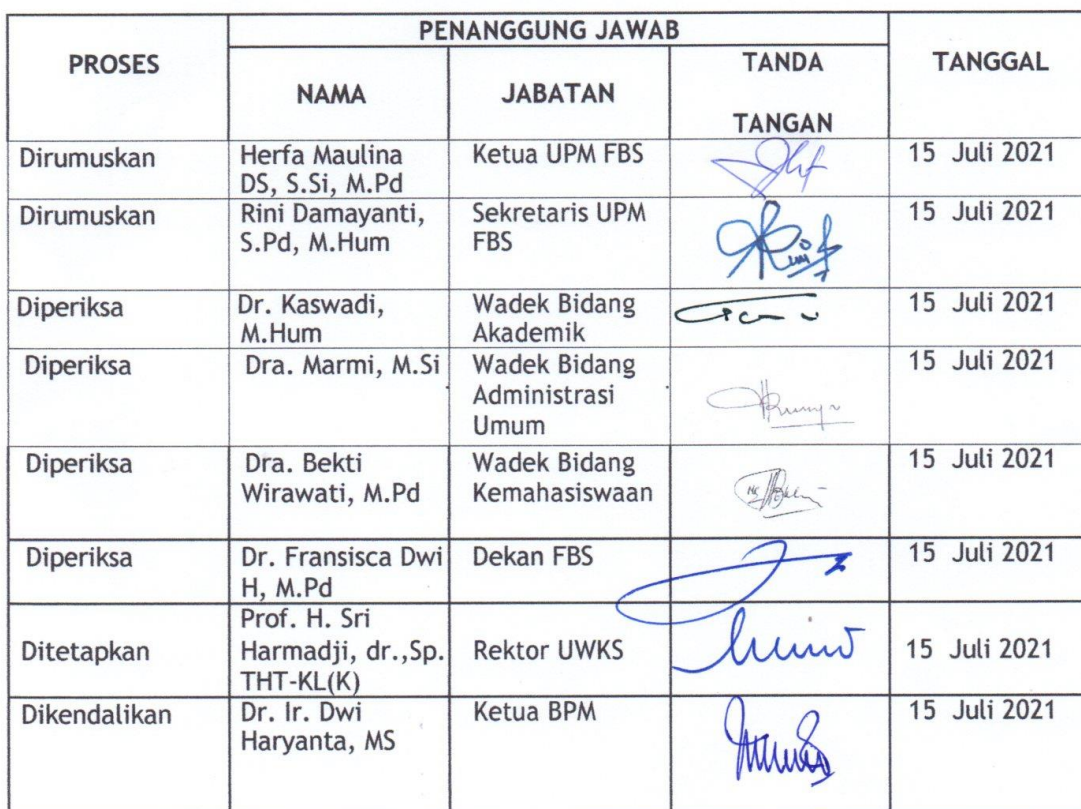 PENANGGUNG JAWAB
PROSES
NAMA
JABATAN
TANDA
TANGAN
TANGGAL
Dirumuskan
Herfa Maulina
DS, S.Si, M.Pd
Ketua UPM FBS
15 Juli 2021
Dirumuskan
Rini Damayanti,
S.Pd, M.Hum
Sekretaris UPM
FBS
15 Juli 2021
Diperiksa
Dr. Kaswadi,
M.Hum
Wadek Bidang
Akademik
15 Juli 2021
Diperiksa
Dra. Marmi, M.Si
Wadek Bidang
Administrasi
Umum
15 Juli 2021
Diperiksa
Dra. Bekti
Wirawati, M.Pd
Wadek Bidang
Kemahasiswaan
15 Juli 2021
Diperiksa
Dr. Fransisca Dwi
H, M.Pd
Dekan FBS
15 Juli 2021
Ditetapkan
Prof. H. Sri
Harmadji, dr.,Sp.
THT-KL(K)
Rektor UWKS
15 Juli 2021
Dikendalikan
Dr. Ir. Dwi
Haryanta, MS
Ketua BPM
15 Juli 2021